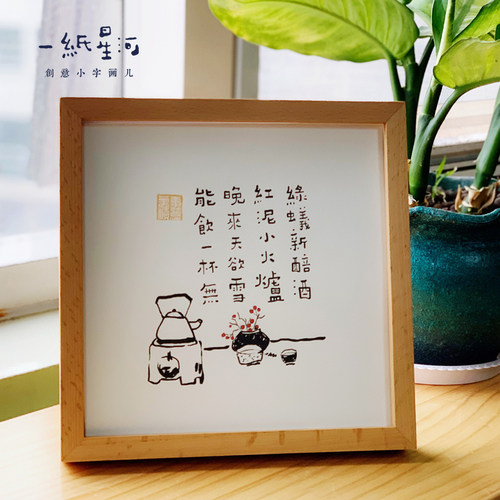 一紙星河
創意小字画儿
綠蟻新醅酒
紅泥小火爐
晚來天欲雪
能飲一杯無